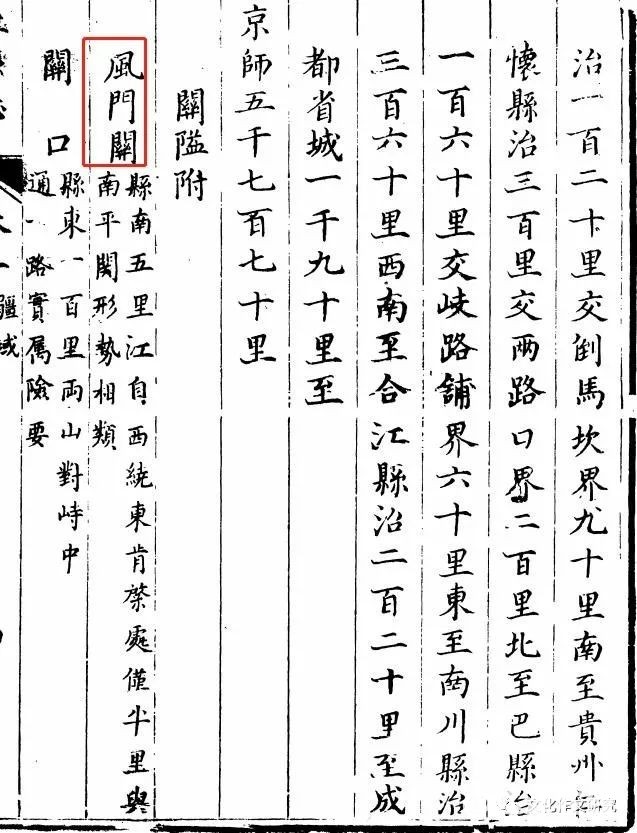 治一百二十里交倒馬坎界九十里南至貴州
懷縣治三百里交兩路口界二百里北至巴縣治
一百六十里交岐路舖界六十里東至南川縣治
三百六十里西南至合江縣治二百二十里至成
都省城一千九十里至
京師五千七百七十里
關隘附
風門關
縣南五里江自西繞東肯綮處僅半里與
南平関形勢相類
關口
縣東一百里両山對峙中
通一路實属險要
疆域